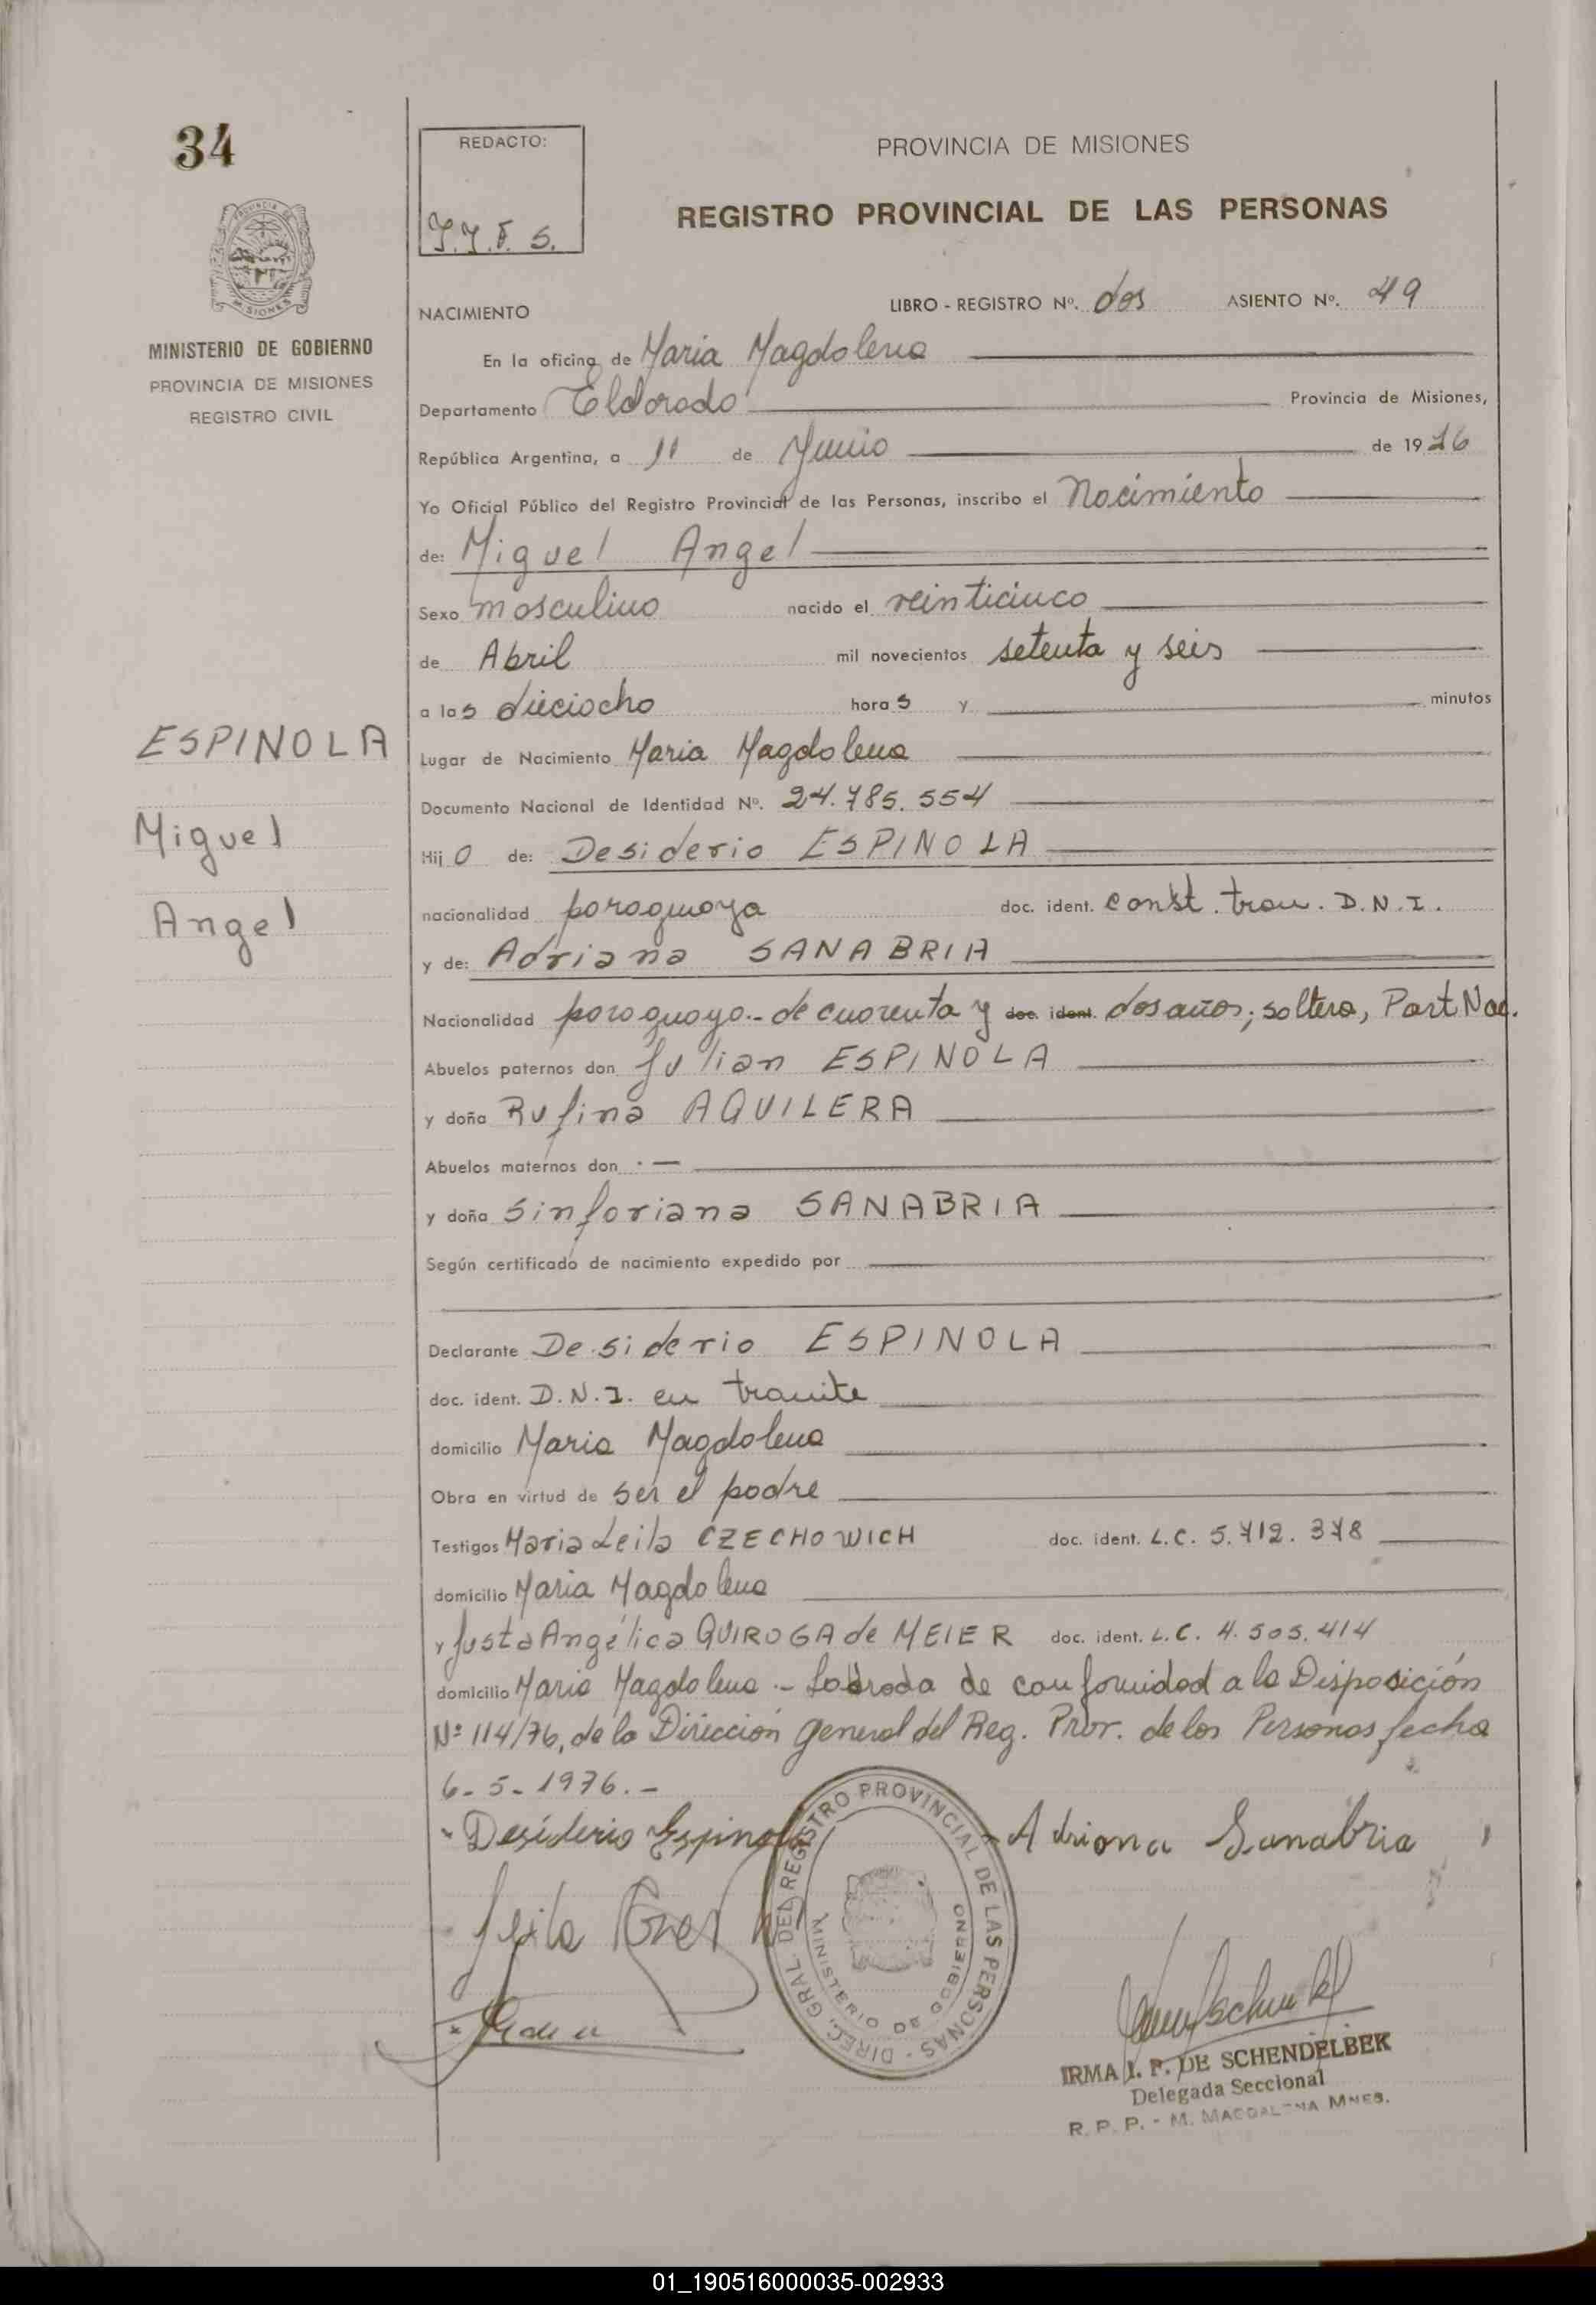 34
REDACTO:
PROVINCIA DE MISIONES
REGISTRO PROVINCIAL DE LAS PERSONAS
PROVINCIA DE
MISIONES
MINISTERIO DE GOBIERNO
PROVINCIA DE MISIONES
REGISTRO CIVIL
NACIMIENTO LIBRO - REGISTRO Nº. dos ASIENTO Nº. 49
En la oficina de Maria Magdalena
Departamento Eldorado Provincia de Misiones,
República Argentina, a 11 de Junio de 1976
Yo Oficial Público del Registro Provincial de las Personas, inscribo el Nacimiento
de: Miguel Angel
Sexo masculino nacido el veinticinco
de Abril mil novecientos setenta y seis
a las dieciocho horas y minutos
Lugar de Nacimiento Maria Magdalena
Documento Nacional de Identidad Nº. 24.785.554
Hijo de: Desiderio ESPINOLA
nacionalidad paraguaya doc. ident. const. tram. D.N.I.
y de: Adriana SANABRIA
Nacionalidad paraguaya.- de cuarenta y doc. ident. dos años; soltera, Part Nac.
Abuelos paternos don Julian ESPINOLA
y doña Rufina AQUILERA
Abuelos maternos don . —
y doña Sinforiana SANABRIA
Según certificado de nacimiento expedido por
Declarante Desiderio ESPINOLA
doc. ident. D.N.I. en tramite
domicilio Maria Magdalena
Obra en virtud de ser el padre
Testigos Maria Leila CZECHOWICH doc. ident. L.C. 5.712.378
domicilio Maria Magdalena
y Justa Angélica QUIROGA de MEIER doc. ident. L.C. 4.505.414
domicilio Maria Magdalena .- Labrada de conformidad a la Disposición
Nº 114/76, de la Dirección general del Reg. Prov. de las Personas fecha
6-5-1976.-
Desiderio Espinola
Adriana Sanabria
Leila
DIREC. GRAL. DEL REGISTRO PROVINCIAL DE LAS PERSONAS -
MINISTERIO DE GOBIERNO
IRMA I. P. DE SCHENDELBEK
Delegada Seccional
R. P. P. - M. MAGDALENA MNES.
ESPINOLA
Miguel
Angel
01_190516000035-002933